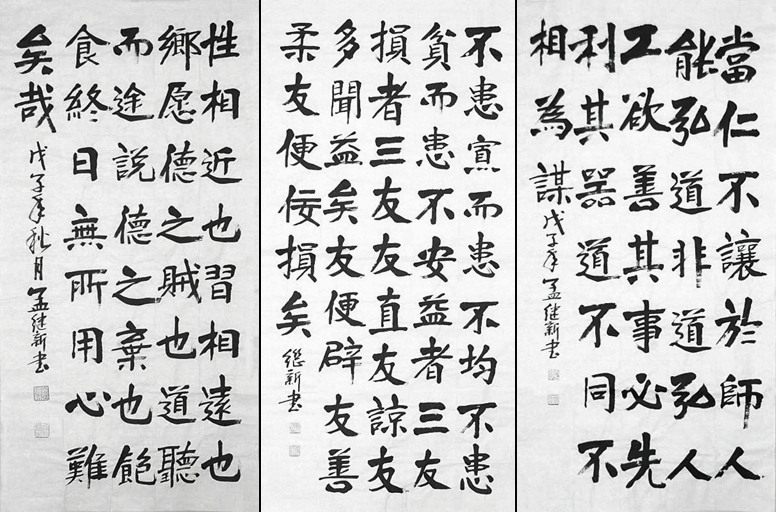 當仁不讓於師人
能弘道非道弘人
工欲善其事必先
利其器道不同不
相為謀
戊子年孟继新书
不患寡而患不均不患
貧而患不安益者三友
損者三友友直友諒友
多聞益矣友便辟友善
柔友便佞損矣
继新书
性相近也習相遠也
鄉愿德之賊也道聽
而途說德之棄也飽
食終日無所用心難
矣哉
戊子年秋月孟继新书